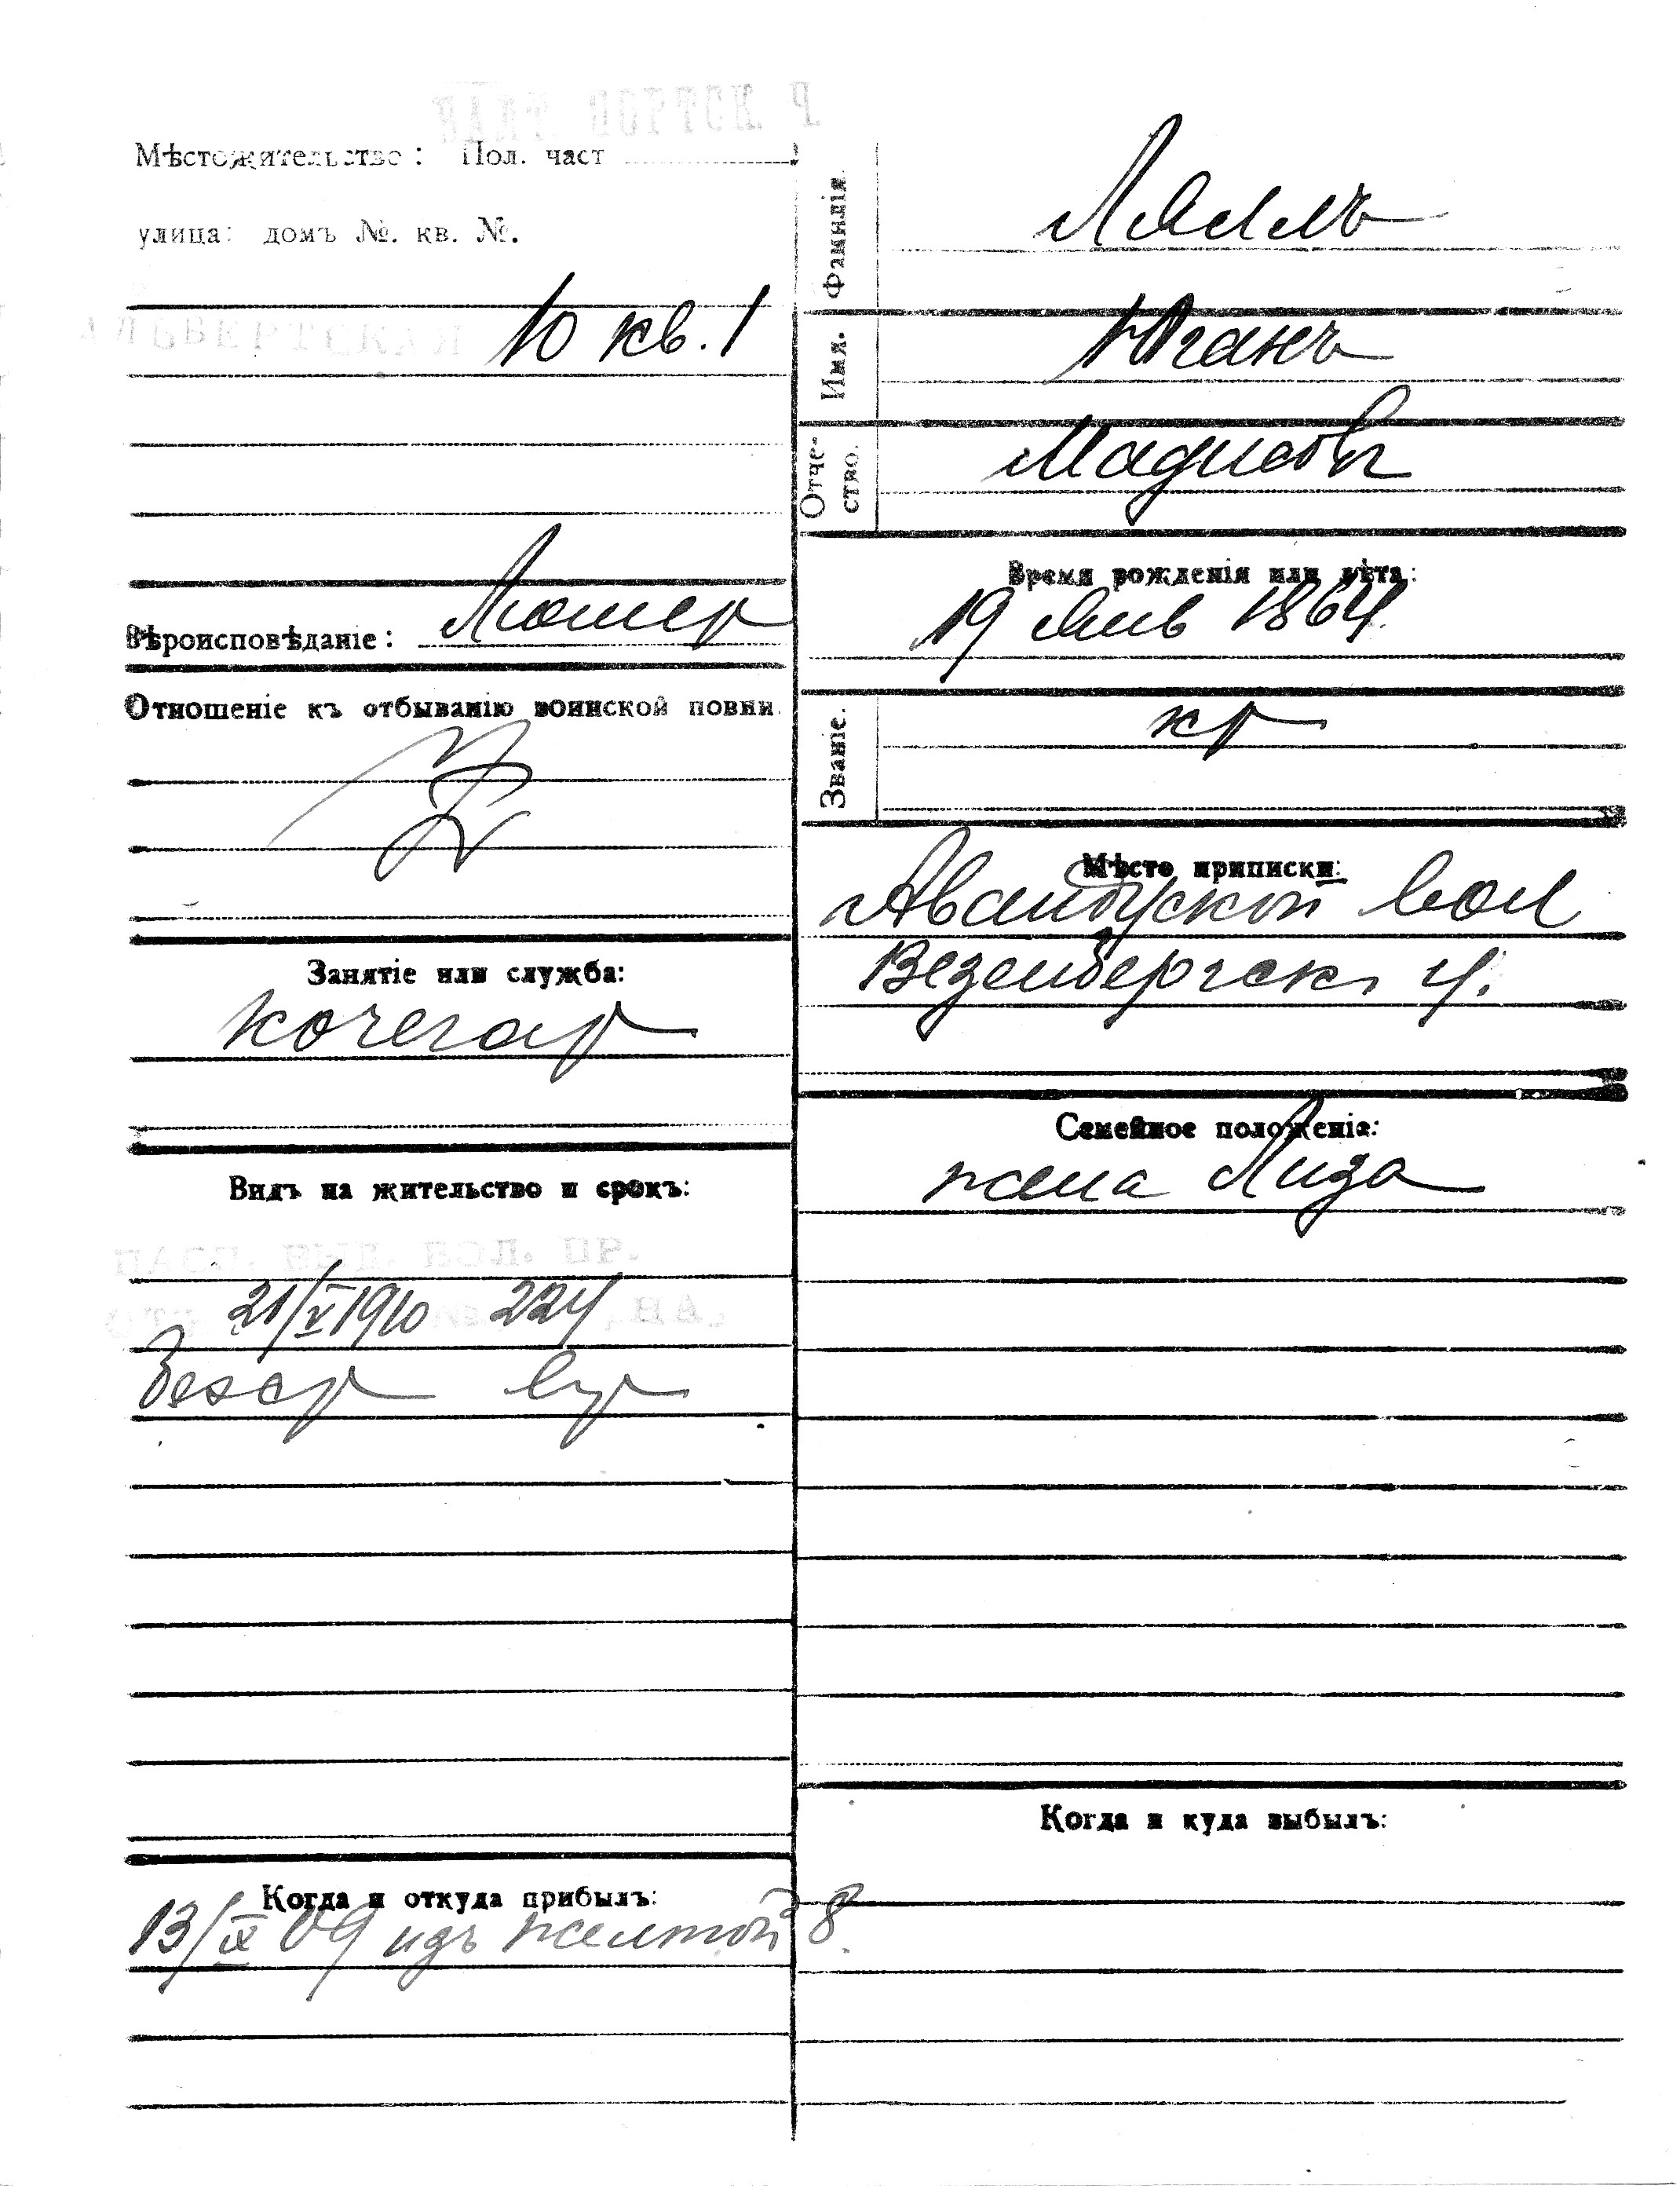 БАЛТ. ПОРТСК. Ч.
Мѣстожительство: Пол. част
улица: домъ №. кв. №.
АЛЬБЕРТСКАЯ 10 кв. 1
Вѣроисповѣданіе: Лютер
Отношеніе къ отбыванію воинской повин.
Занятіе или служба:
кочегар
Видъ на жительство и срокъ:
ПАСП. ВЫД. ВОЛ. ПР.
21/V 1910 224
бехср
Когда и откуда прибылъ:
13/IX 09 идъ желтой 8.
Фамилія.
Ляллъ
Имя.
Юганъ
Отче-
ство.
Мадисовъ
Время рожденія или лѣта:
19 Янв 1864
Званіе.
кр
Мѣсто приписки:
Авандуской вол
Везенбергск. у.
Семейное положеніе:
жена Лиза
Когда и куда выбылъ: